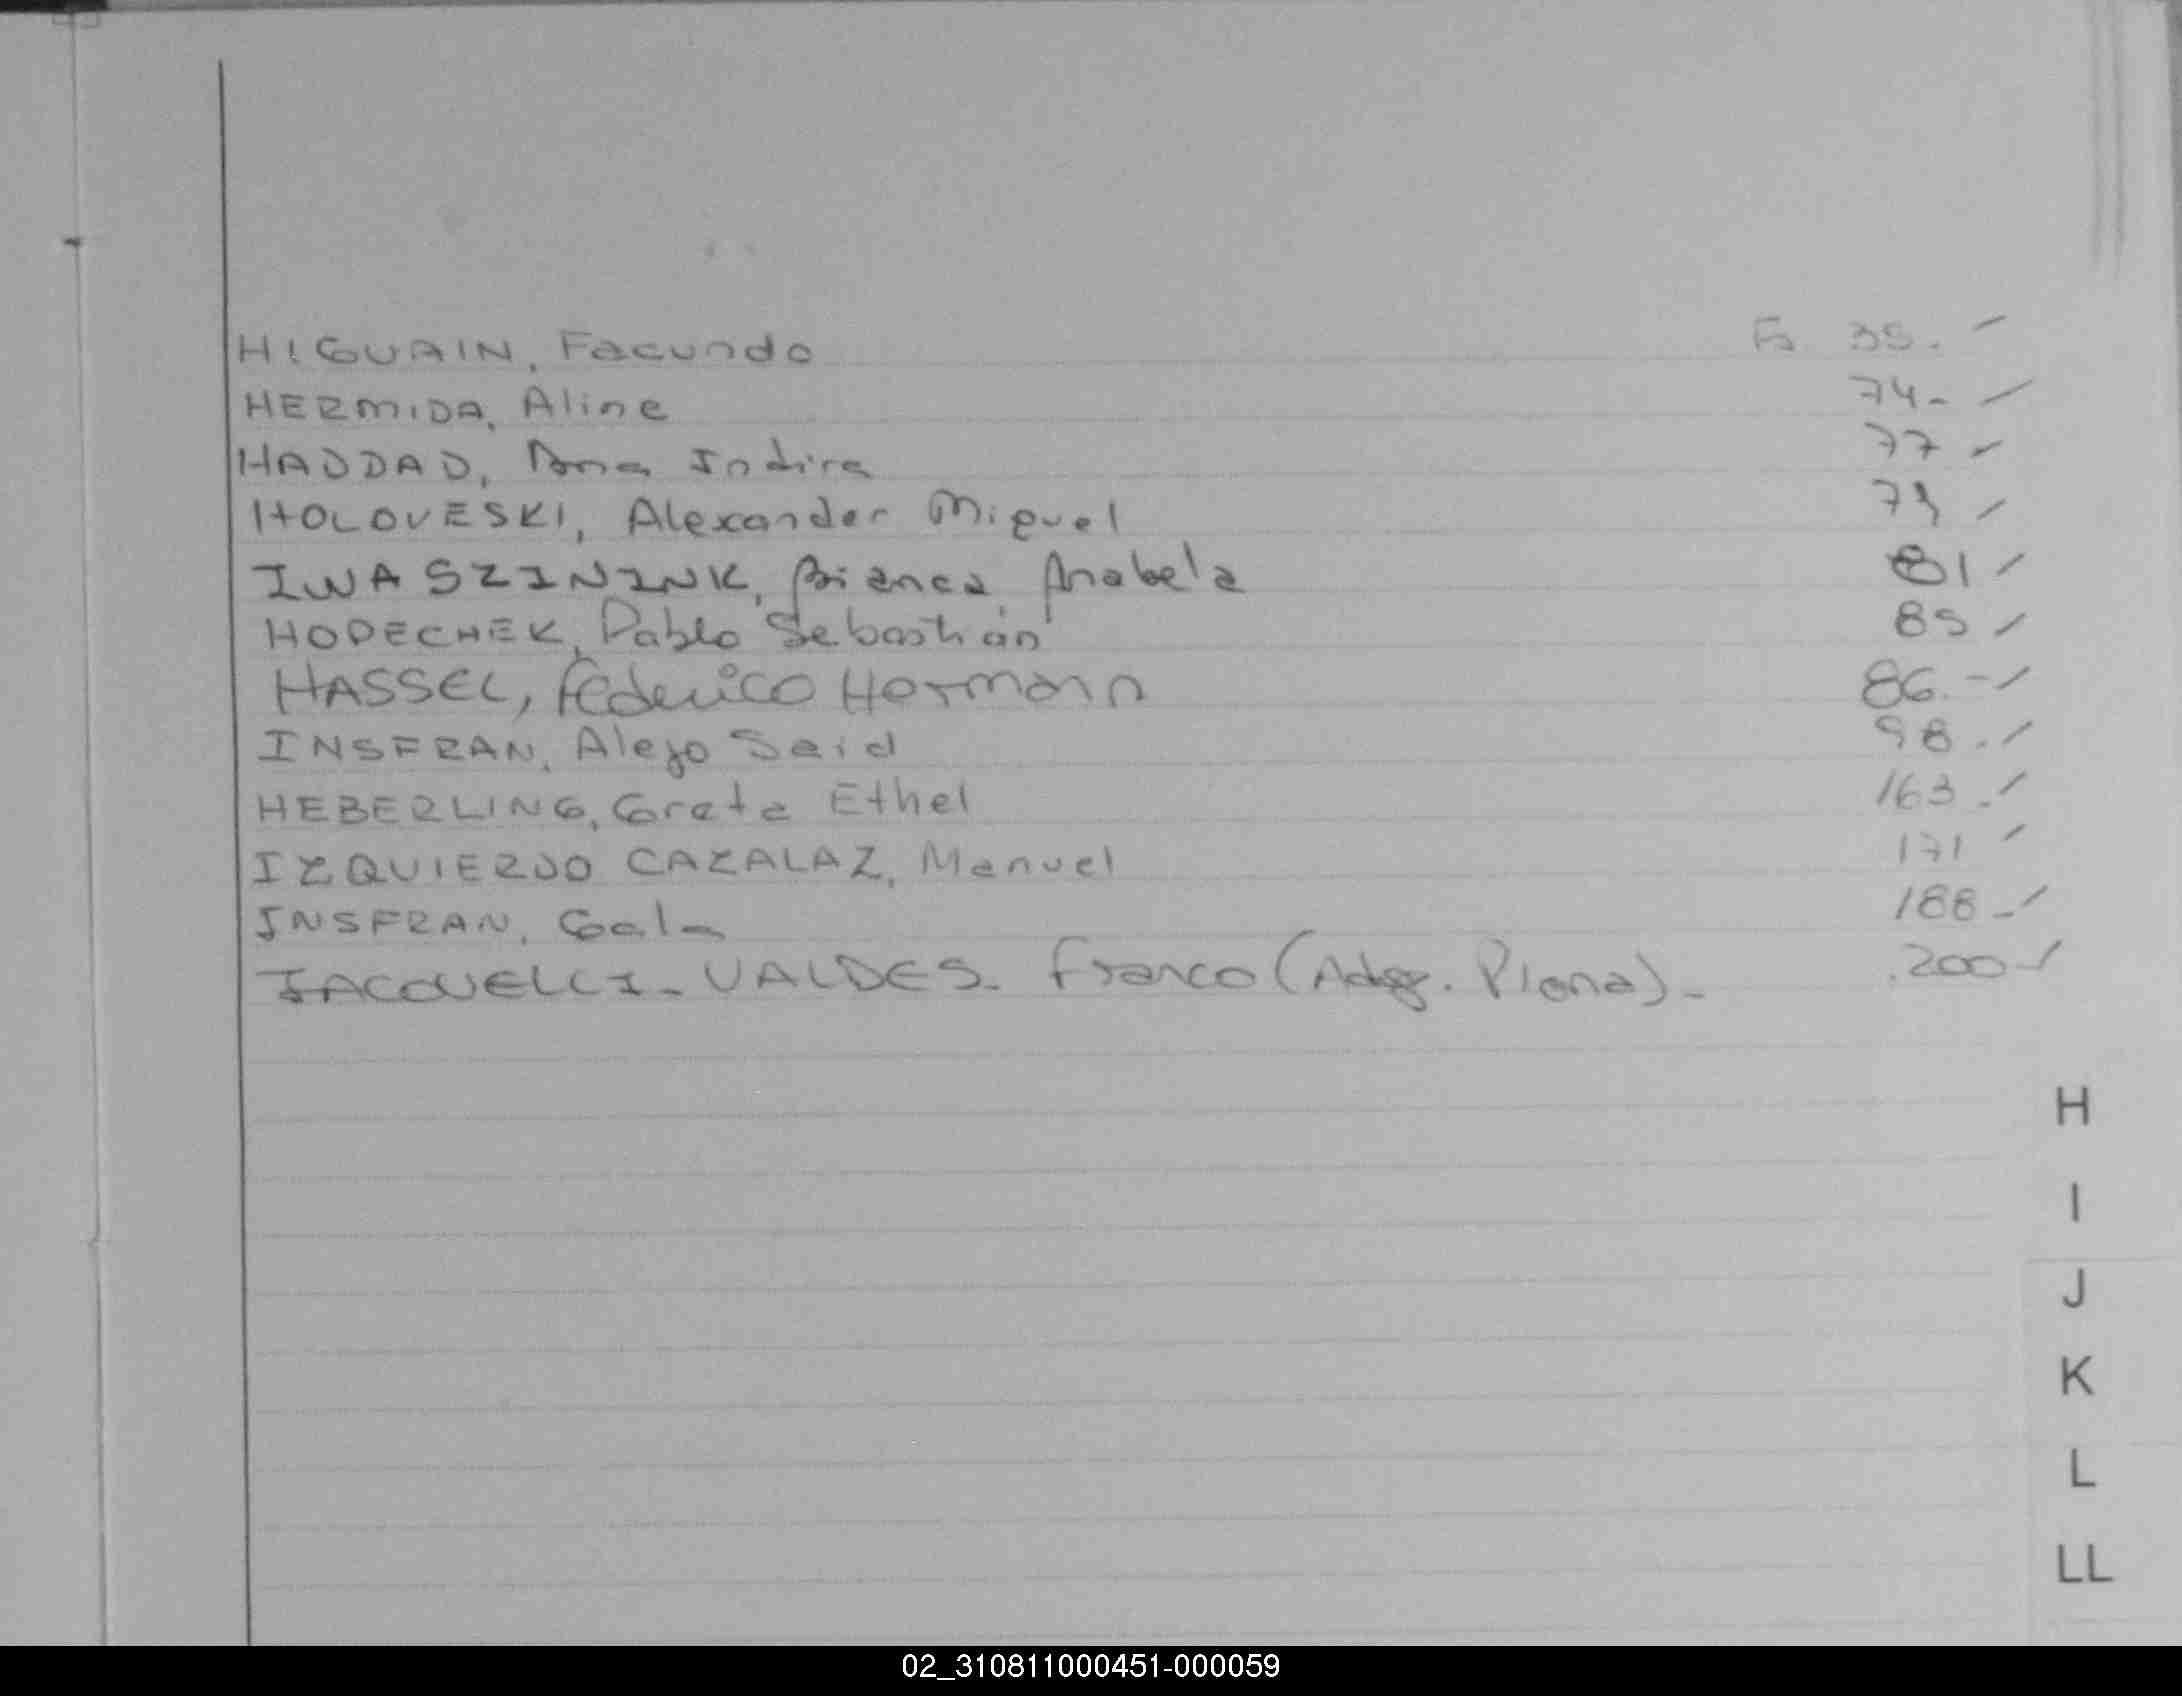 HIGUAIN, Facundo Fs 35.-
HERMIDA, Aline 74.-
HADDAD, Ana Indira 77
HOLOVESKI, Alexander Miguel 79
IWASZININK, Bianca Anabela 81
HODECHEK, Pablo Sebastián 85
HASSEL, Federico Hermann 86.-
INSFRAN, Alejo Said 98.
HEBERLING, Greta Ethel 163.
IZQUIERDO CAZALAZ, Manuel 171
INSFRAN, Gala 188-
IACQUELLI-VALDES- Franco (Adop. Plena)- 200-
H
I
J
K
L
LL
02_310811000451-000059